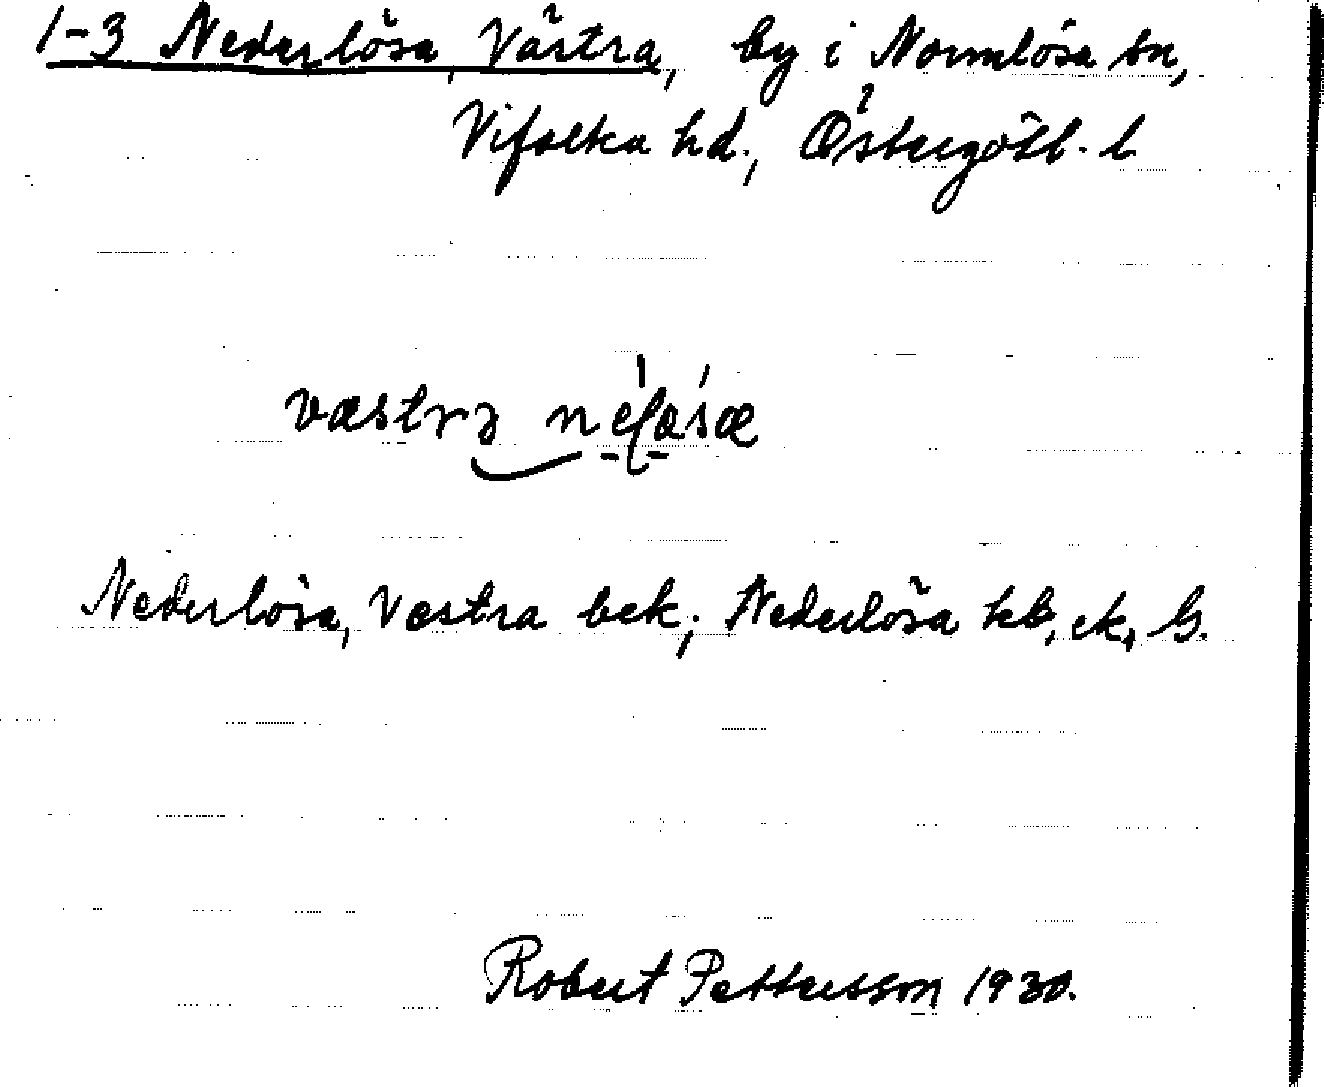 1-3 Nederlösa, Västra, by i Normlösa sn,
Vifolka hd., Östergötl. l.
væstrə
Nederlösa, Vestra bek; Nederlösa kb, ek, G.
Robert Pettersson 1930.